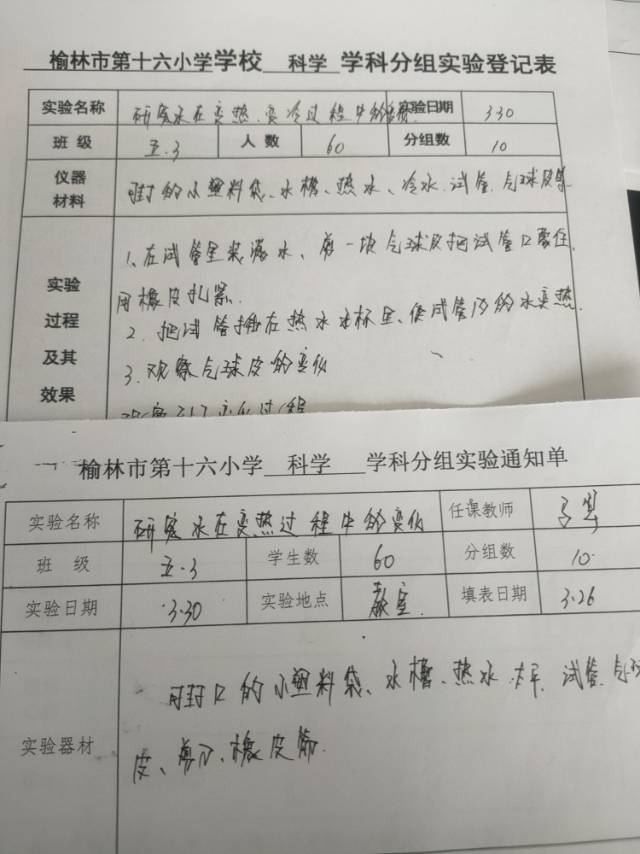 榆林市第十六小学学校 科学 学科分组实验登记表
实验名称 研究水在变热、变冷过程中的 实验日期 3.30
班级 五.3 人数 60 分组数 10
仪器材料 可封的小塑料袋、水槽、热水、冷水、试管、气球皮等
实验过程及其效果
1、在试管里装满水、剪一块气球皮把试管口套住,
用橡皮扎紧.
2、把试管插在热水水杯里、使试管内的水变热.
3、观察气球皮的变化
榆林市第十六小学 科学 学科分组实验通知单
实验名称 研究水在变热过程中的变化 任课教师
班级 五.3 学生数 60 分组数 10.
实验日期 3.30 实验地点 教室. 填表日期 3.26
实验器材 可封口的小塑料袋、水槽、热水 试管、气球
皮、剪刀、橡皮筋.